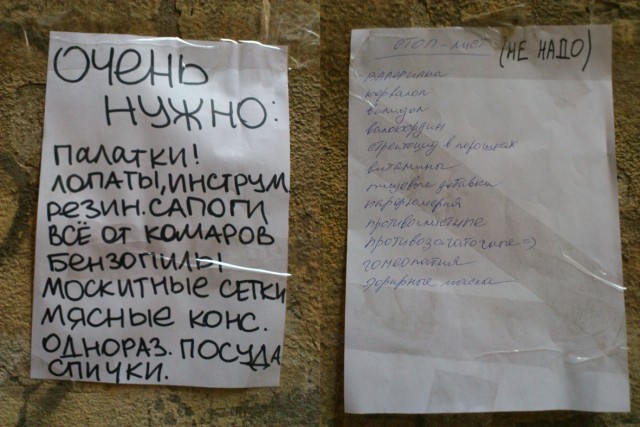 ОЧЕНЬ
НУЖНО:
ПАЛАТКИ!
ЛОПАТЫ, ИНСТРУМ
РЕЗИН. САПОГИ
ВСЁ ОТ КОМАРОВ
БЕНЗОПИЛЫ
МОСКИТНЫЕ СЕТКИ
МЯСНЫЕ КОНС.
ОДНОРАЗ. ПОСУДА
СПИЧКИ.
СТОП-лист (НЕ НАДО)
валериана
корвалол
валидол
валокордин
стрептоцид в порошках
витамины
пищевые добавки
парфюмерия
противоглистные
противозачаточные =)
гомеопатия
эфирные масла